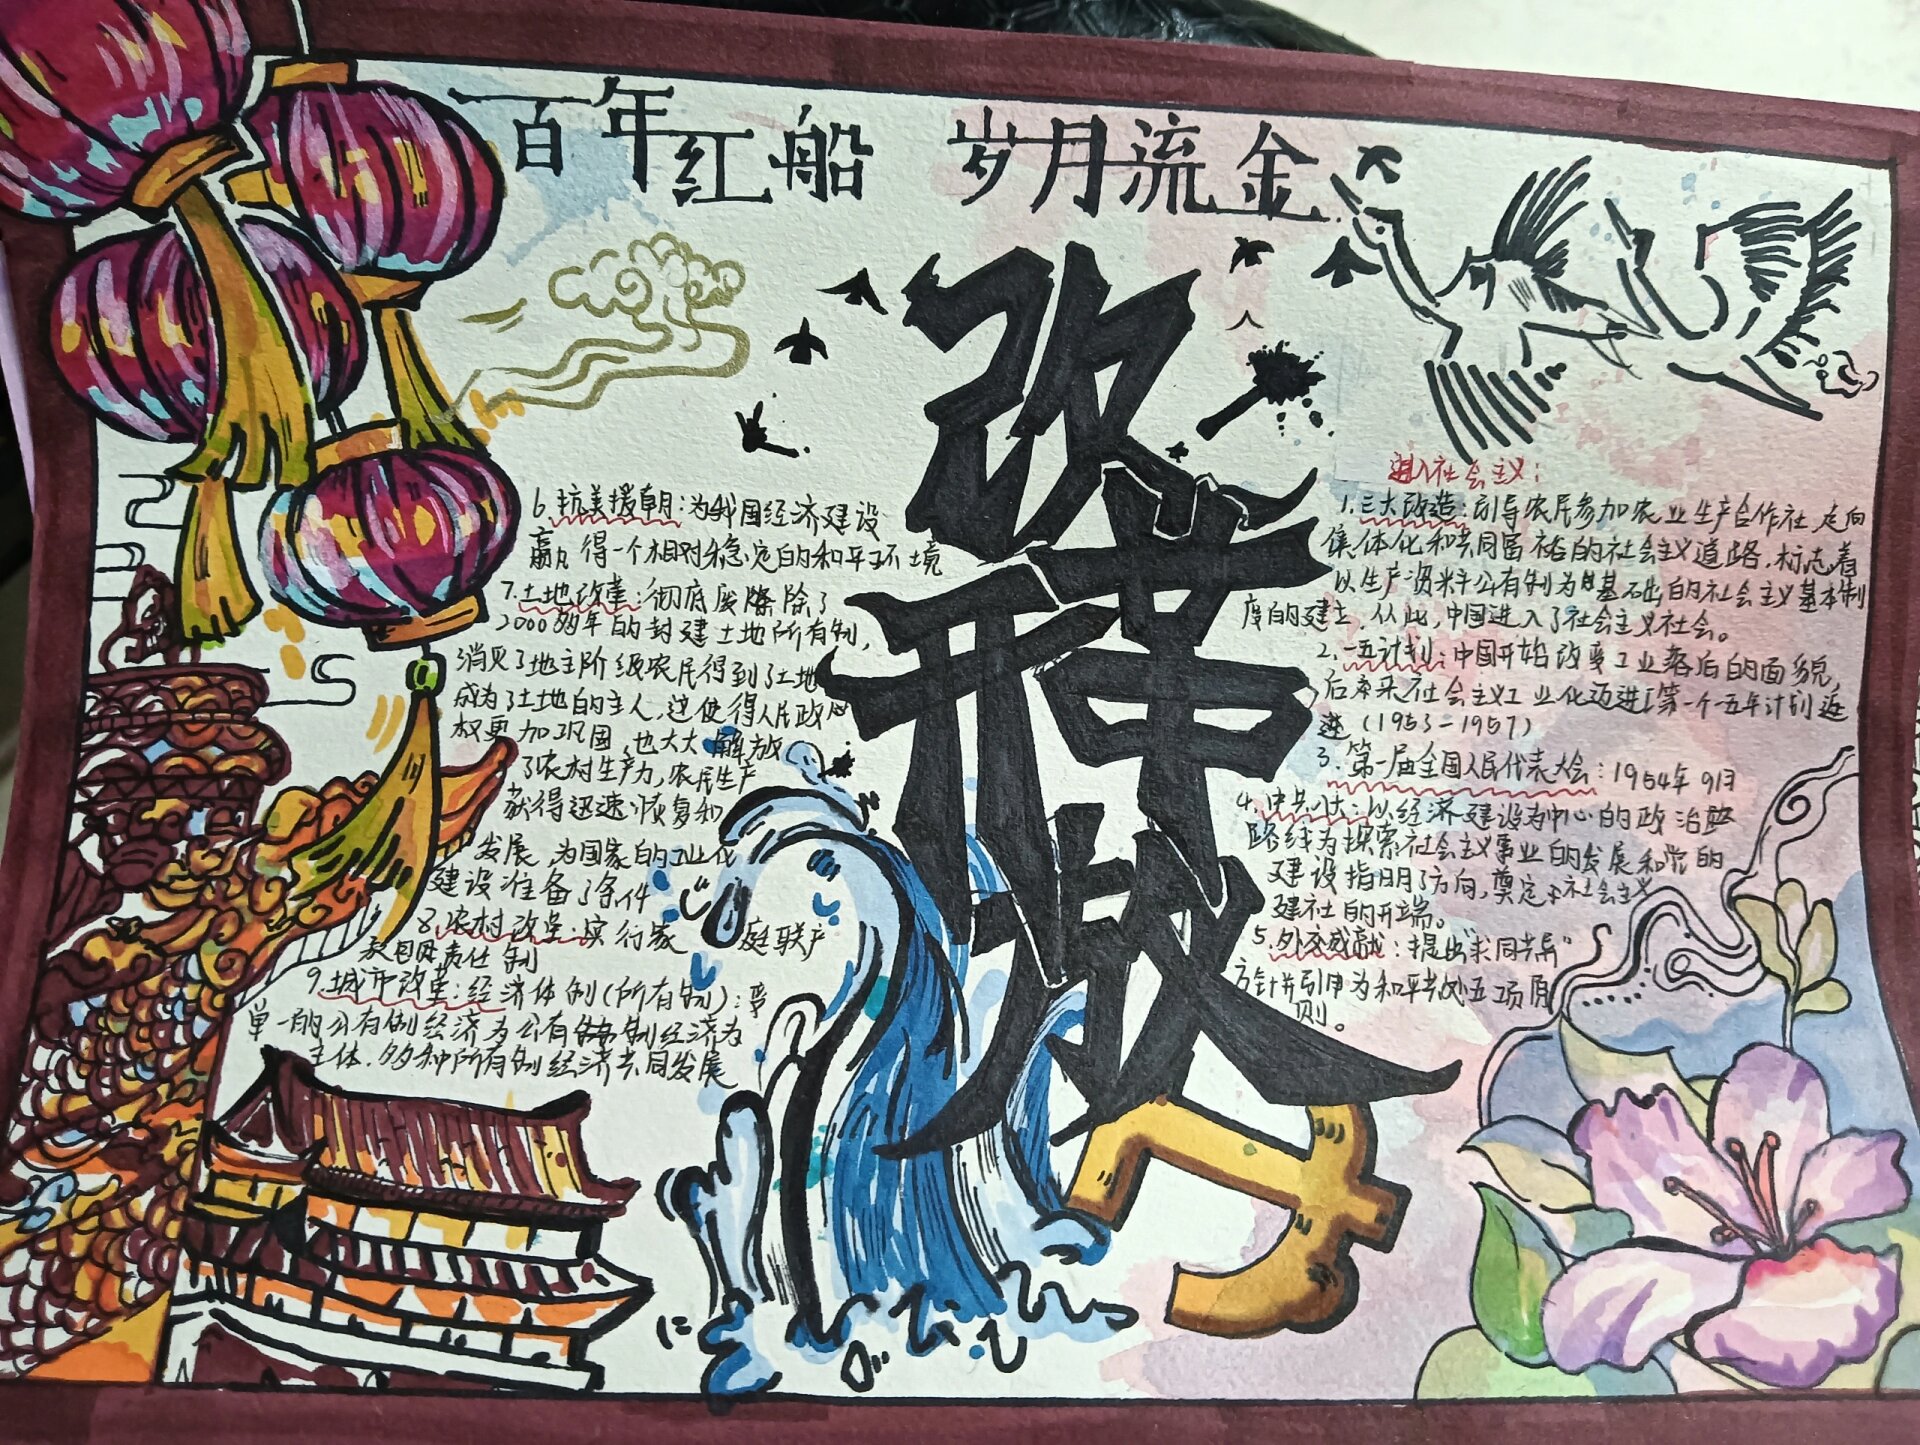 百年红船 岁月流金
改革
开放
进入社会主义:
1.三大改造:引导农民参加农业生产合作社走向
集体化和共同富裕的社会主义道路,标志着
以生产资料公有制为基础的社会主义基本制
度的建立,从此,中国进入了社会主义社会。
2.一五计划:中国开始改变工业落后的面貌,
后来社会主义工业化迈进[第一个五年计划
进(1953-1957)
3.第一届全国人民代表大会:1954年9月
4.中共八大:以经济建设为中心的政治
路线为探索社会主义事业的发展和党的
建设指明了方向,奠定社会主义
建社的开端。
5.外交成就:提出"求同存异"
方针并引申为和平共处五项原
则。
6.抗美援朝:为我国经济建设
赢得一个相对稳定的和平环境
7.土地改革:彻底废除了
2000多年的封建土地所有制,
消灭了地主阶级农民得到了土地
成为了土地的主人,这使得人民政
权更加巩固,也大大解放
了农村生产力,农民生产
获得迅速恢复和
发展,为国家的工业化
建设准备了条件
8.农村改革:实行家庭联产
责任制
9.城市改革:经济体制(所有制):变
单一的公有制经济为公有制经济为
主体,多种所有制经济共同发展